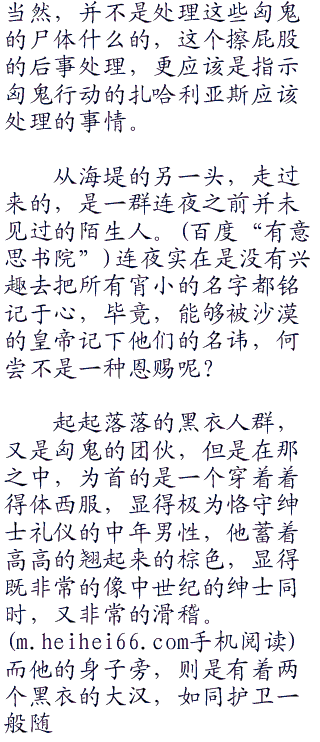 当然，并不是处理这些匈鬼
的尸体什么的，这个擦屁股
的后事处理，更应该是指示
匈鬼行动的扎哈利亚斯应该
处理的事情。
从海堤的另一头，走过
来的，是一群连夜之前并未
见过的陌生人。(百度“有意
思书院”)连夜实在是没有兴
趣去把所有宵小的名字都铭
记于心，毕竟，能够被沙漠
的皇帝记下他们的名讳，何
尝不是一种恩赐呢？
起起落落的黑衣人群，
又是匈鬼的团伙，但是在那
之中，为首的是一个穿着着
得体西服，显得极为恪守绅
士礼仪的中年男性，他蓄着
高高的翘起来的棕色，显得
既非常的像中世纪的绅士同
时，又非常的滑稽。
(m.heihei66.com手机阅读)
而他的身子旁，则是有着两
个黑衣的大汉，如同护卫一
般随